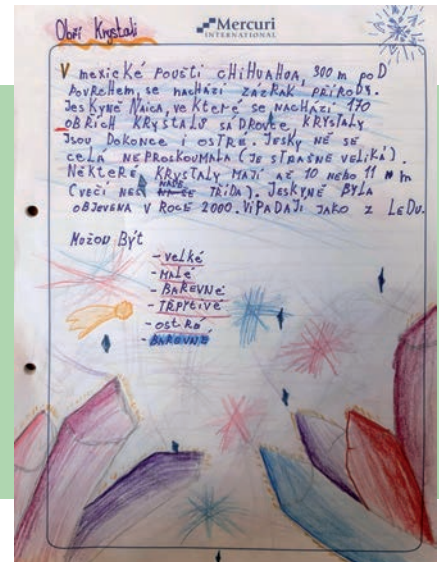 Obří Krystali
Mercuri
INTERNATIONAL
V mexické poušti CHiHUAHUA, 300 m poD
povrchem, se nachází zázrak přírody.
Jeskyně Naica, ve které se nachází 170
obřích krystalů sádrovce. Krystaly
jsou dokonce i ostré. Jesky ně se
celá neproskoumala (je strašně veliká).
Některé krystaly mají až 10 nebo 11 m
(večí než naše třída). Jeskyně byla
objevena v roce 2000. Vipadají jako z ledu.
Možou být
- velké
- malé
- barevné
- třpytivé
- ostré
- barovné